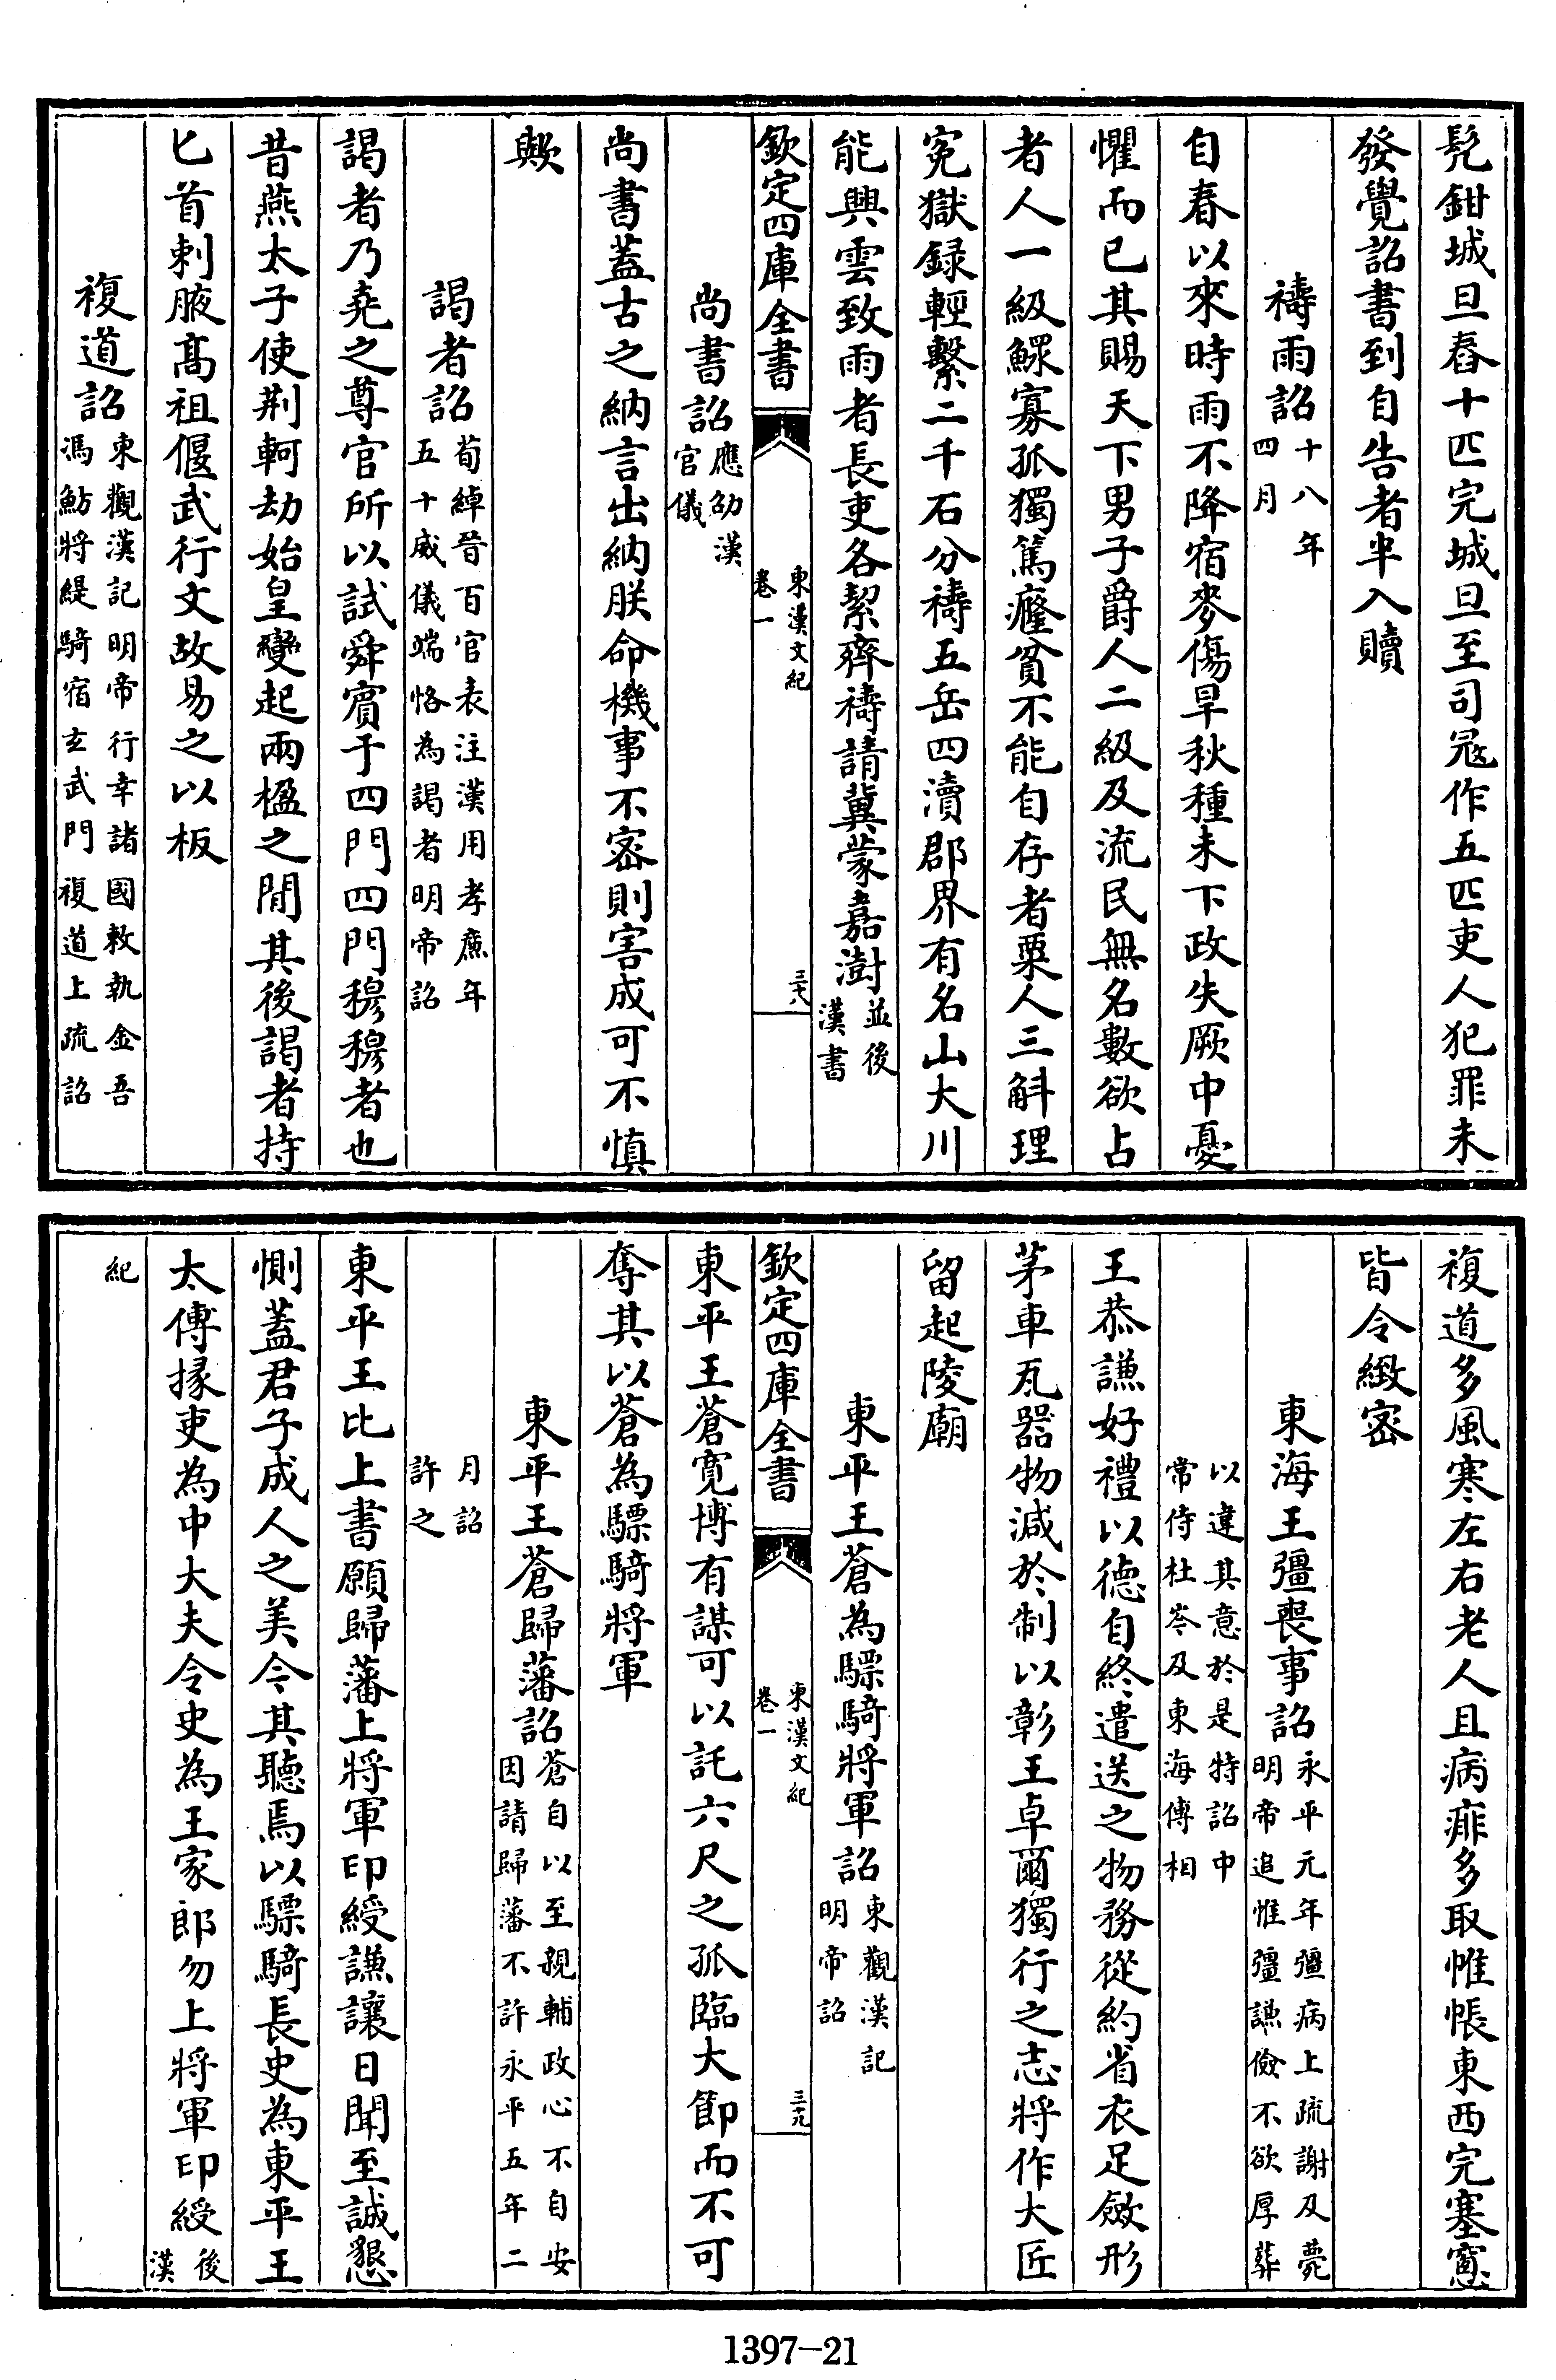 髡鉗城旦舂十匹完城旦至司冦作五匹吏人犯罪未
發覺詔書到自告者半入贖
禱雨詔十八年
四月
自春以來時雨不降宿麥傷旱秋種未下政失厥中憂
懼而已其賜天下男子爵人二級及流民無名數欲占
者人一級鰥寡孤獨篤癃貧不能自存者粟人三斛理
寃獄録輕繫二千石分禱五岳四瀆郡界有名山大川
能興雲致雨者長吏各絜齊禱請冀蒙嘉澍並後
漢書
欽定四庫全書
東漢文紀
卷一
三十八
尚書詔應劭漢
官儀
尚書蓋古之納言出納朕命機事不密則害成可不慎
歟
謁者詔荀綽晉百官表注漢用孝廉年
五十威儀端恪為謁者明帝詔
謁者乃堯之尊官所以試舜賓于四門四門穆穆者也
昔燕太子使荆軻劫始皇變起兩楹之間其後謁者持
匕首刺腋髙祖偃武行文故易之以板
複道詔東觀漢記明帝行幸諸國敕執金吾
馮魴將緹騎宿玄武門複道上疏詔
複道多風寒左右老人且病痱多取帷帳東西完塞窻
皆令緻密
東海王彊喪事詔永平元年彊病上疏謝及薨
明帝追惟彊謙儉不欲厚葬
以違其意於是特詔中
常侍杜岑及東海傅相
王恭謙好禮以德自終遣送之物務從約省衣足斂形
茅車瓦器物減於制以彰王卓爾獨行之志將作大匠
留起陵廟
東平王蒼為驃騎將軍詔東觀漢記
明帝詔
欽定四庫全書
東漢文紀
卷一
三十九
東平王蒼寛博有謀可以託六尺之孤臨大節而不可
奪其以蒼為驃騎將軍
東平王蒼歸藩詔蒼自以至親輔政心不自安
因請歸藩不許永平五年二
月詔
許之
東平王比上書願歸藩上將軍印綬謙讓日聞至誠懇
惻蓋君子成人之美今其聽焉以驃騎長史為東平王
太傅掾吏為中大夫令史為王家郎勿上將軍印綬後
漢
紀
1397-21